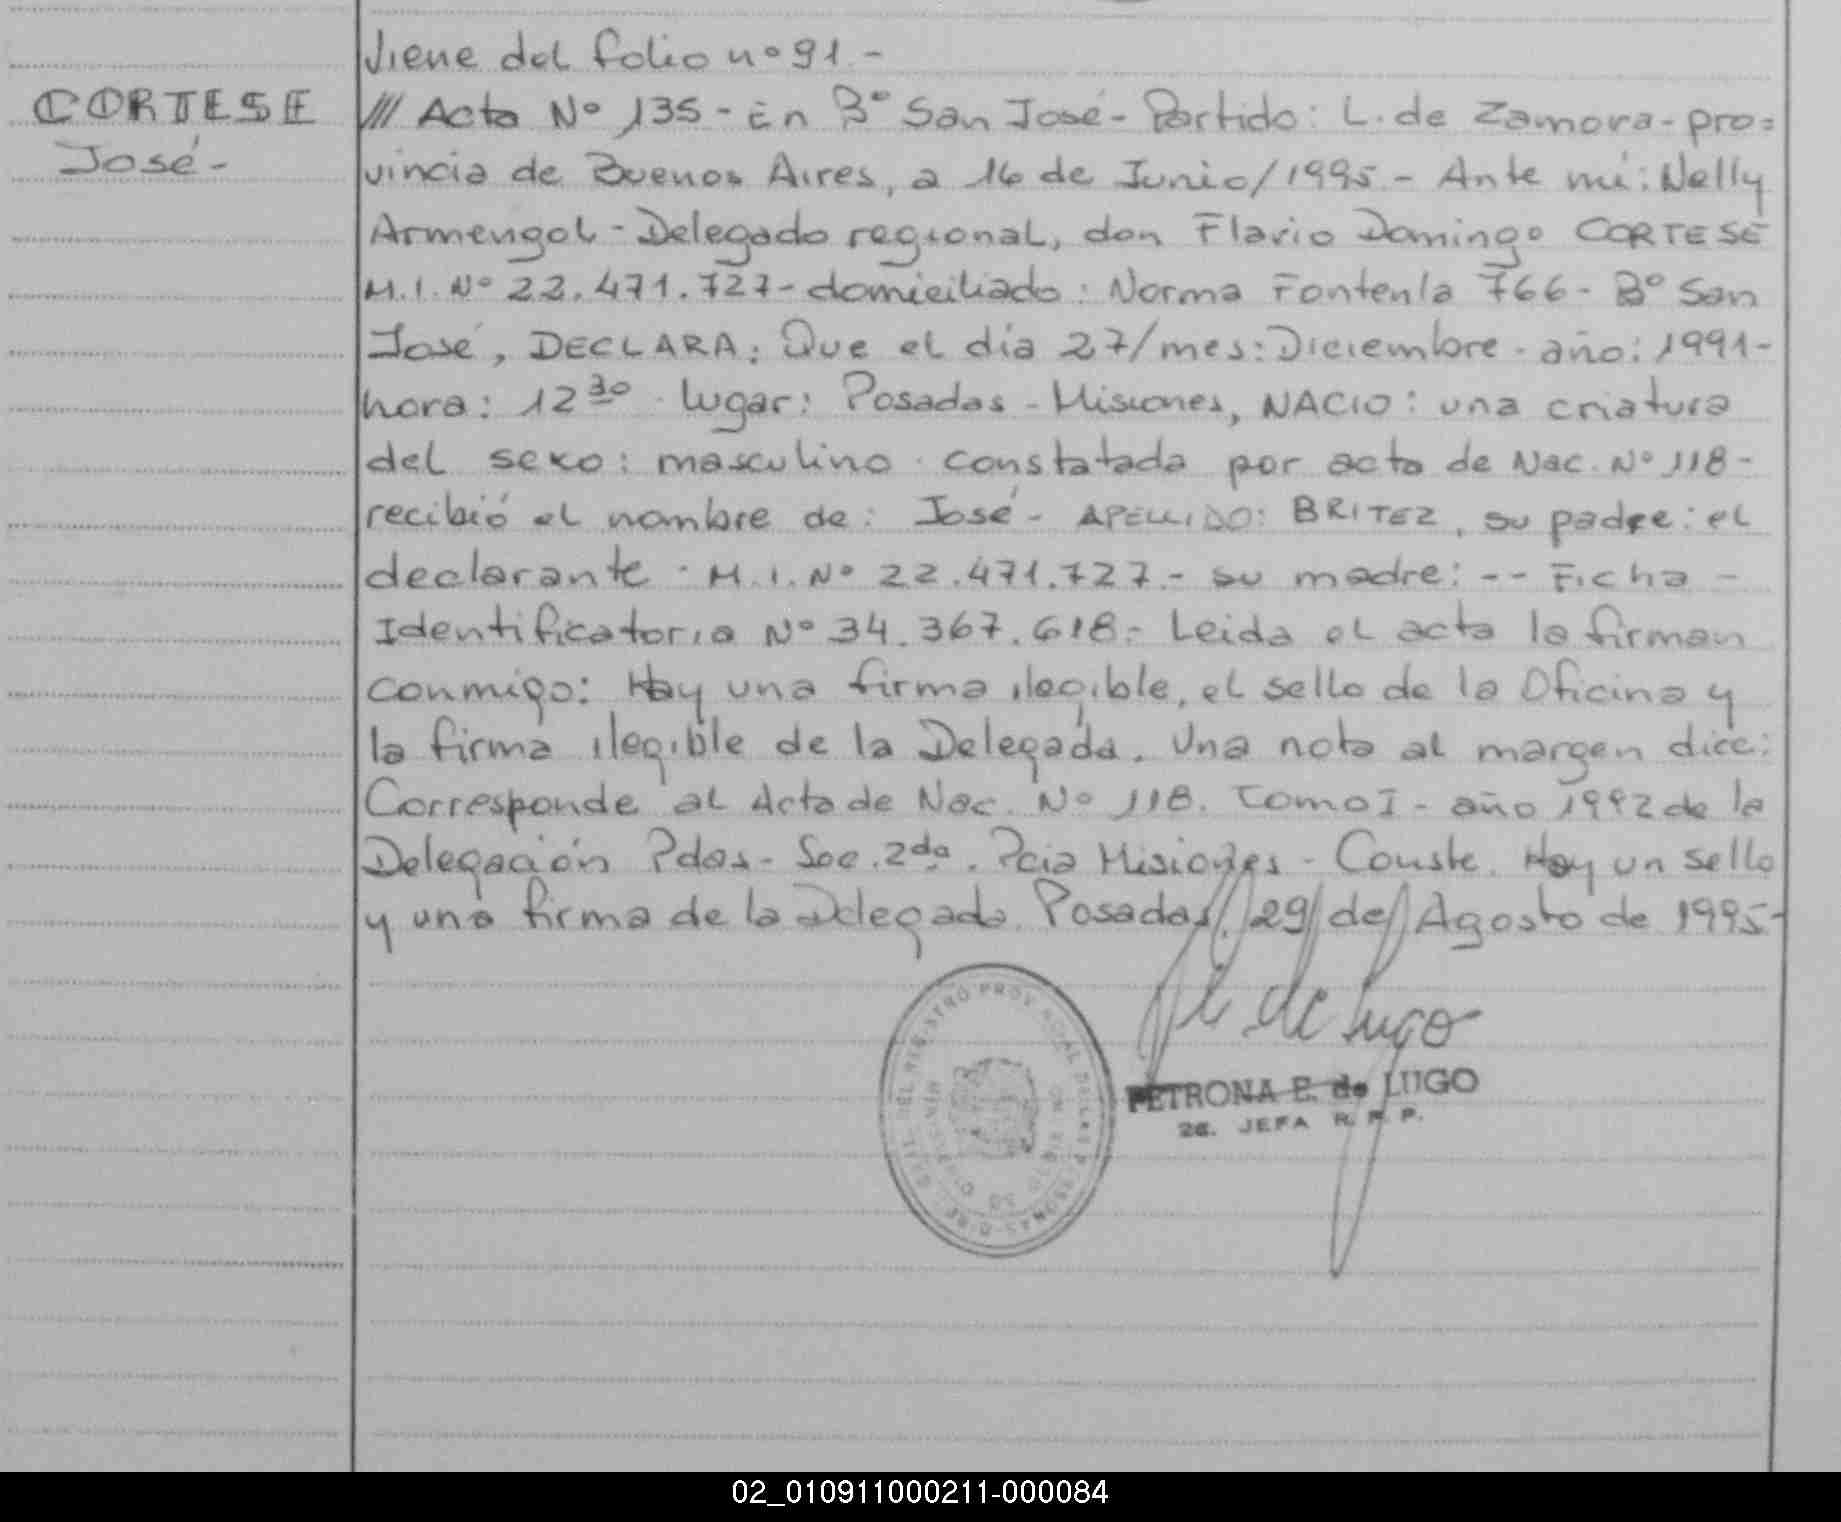 Viene del folio nº 91.-
CORTESE
José-
/// Acta Nº 135 - En Bº San José - Partido: L. de Zamora - pro=
vincia de Buenos Aires, a 16 de Junio/1995.- Ante mí: Nelly
Armengol - Delegado regional, don Flavio Domingo CORTESE
M.I. Nº 22.471.727 - domiciliado: Norma Fontenla 766 - Bº San
José, DECLARA: Que el día 27/mes: Diciembre - año: 1991 -
hora: 12 30 - lugar: Posadas - Misiones, NACIO: una criatura
del sexo: masculino - constatada por acta de Nac. Nº 118 -
recibió el nombre de: José - APELLIDO: BRITEZ, su padre: el
declarante - M.I. Nº 22.471.727.- su madre: -- Ficha -
Identificatoria Nº 34.367.618.- Leida el acta la firman
conmigo: Hay una firma ilegible, el sello de la Oficina y
la firma ilegible de la Delegada. Una nota al margen dice:
Corresponde al Acta de Nac. Nº 118. Tomo I - año 1992 de la
Delegación Pdas - Sec. 2da. Pcia Misiones - Conste. Hay un sello
y una firma de la Delegada. Posadas, 29 de Agosto de 1995-
de Lugo
PETRONA E. de LUGO
2a. JEFA R. P. P.
02_010911000211-000084